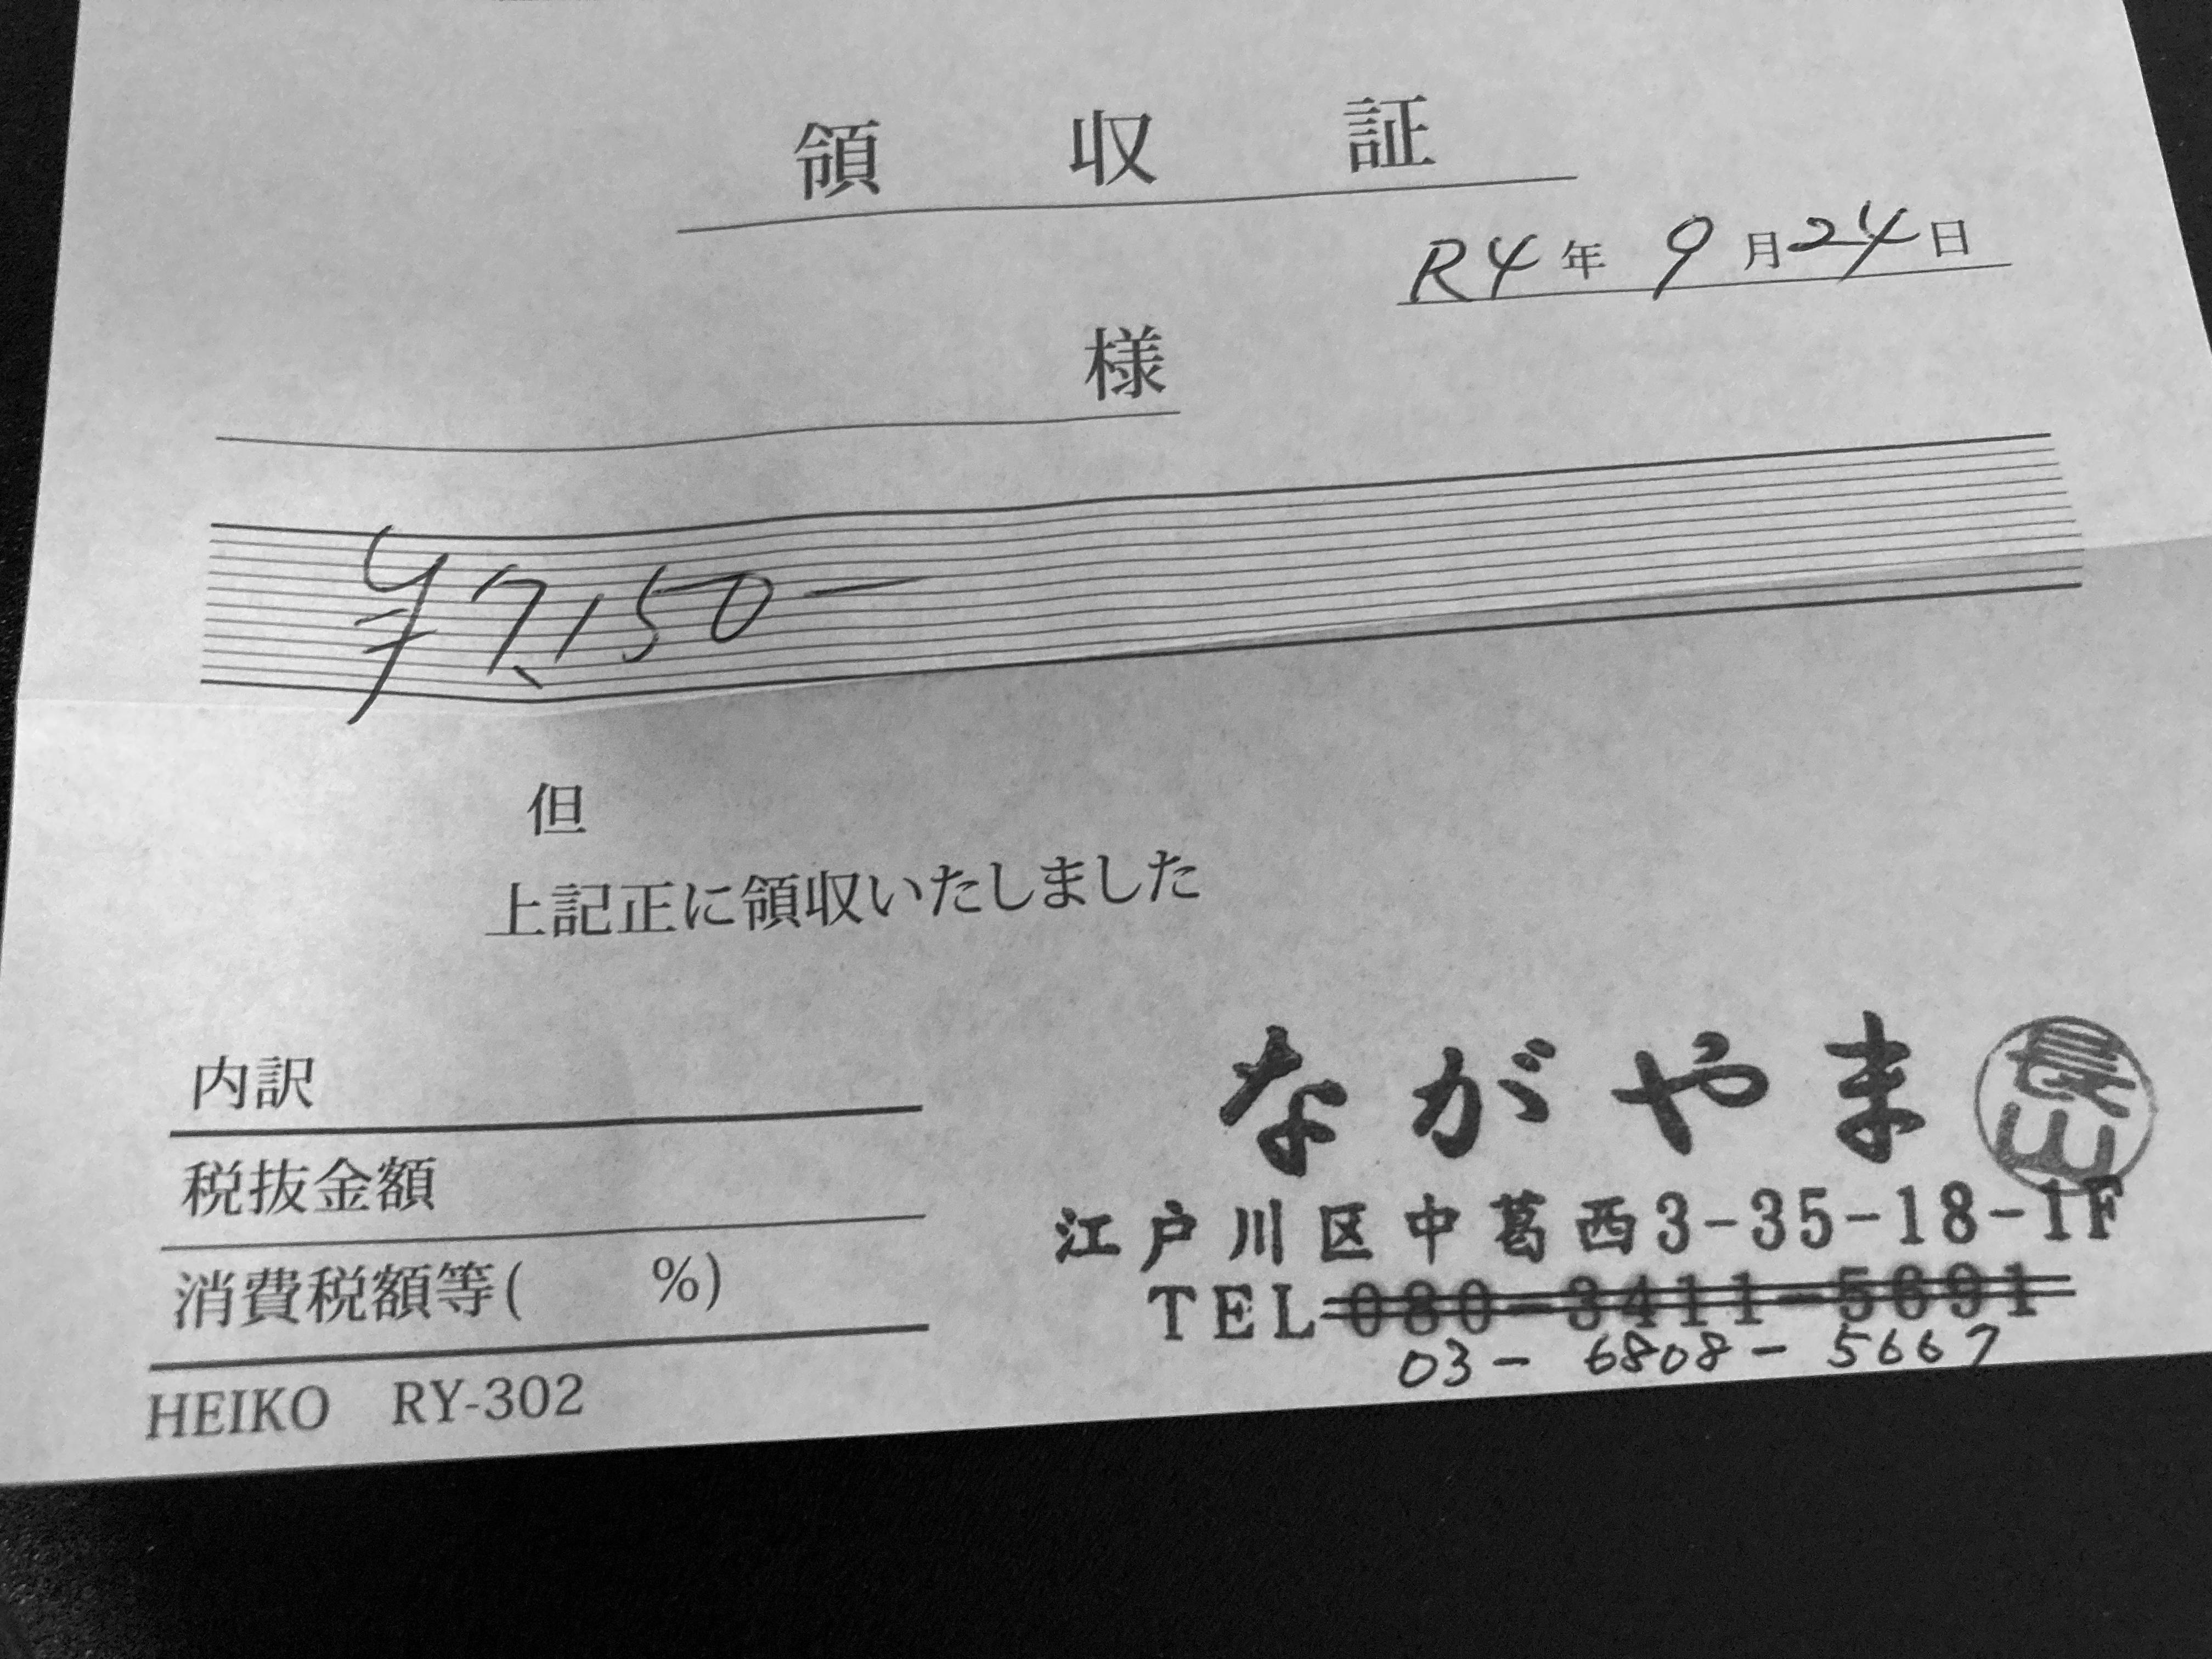 領収証
R4年9月24日
様
¥7,150-
但
上記正に領収いたしました
内訳
税抜金額
消費税額等( %)
HEIKO RY-302
ながやま 長山
江戸川区中葛西3-35-18-1F
TEL 080-3411-5691
03-6808-5667